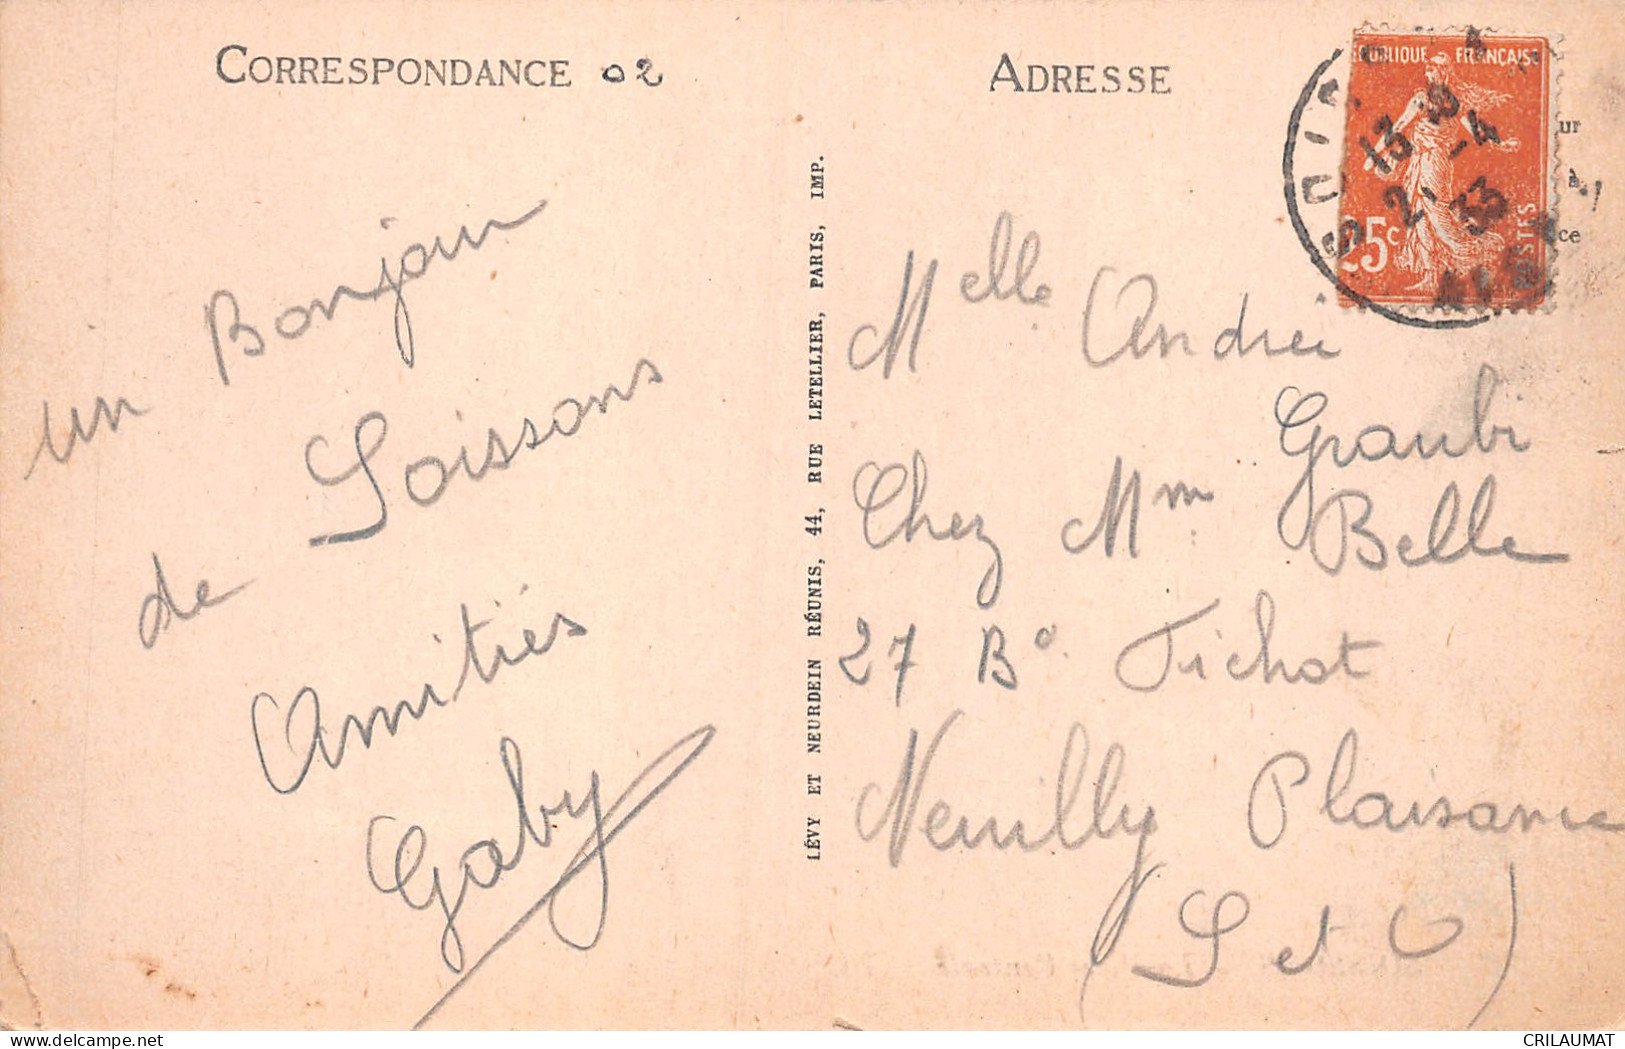 CORRESPONDANCE 02
un Bonjour
de Soissons
Amitiés
Gaby
LÉVY ET NEURDEIN RÉUNIS, 44, RUE LETELLIER, PARIS, IMP.
ADRESSE
RÉPUBLIQUE FRANÇAISE
25c
POSTES
13
21 -4
33
ur
à
ce
Melle Andrée
Graubi
Chez Mm Belle
27 Bd Fichot
Neuilly Plaisance
(S et O)
CRILAUMAT